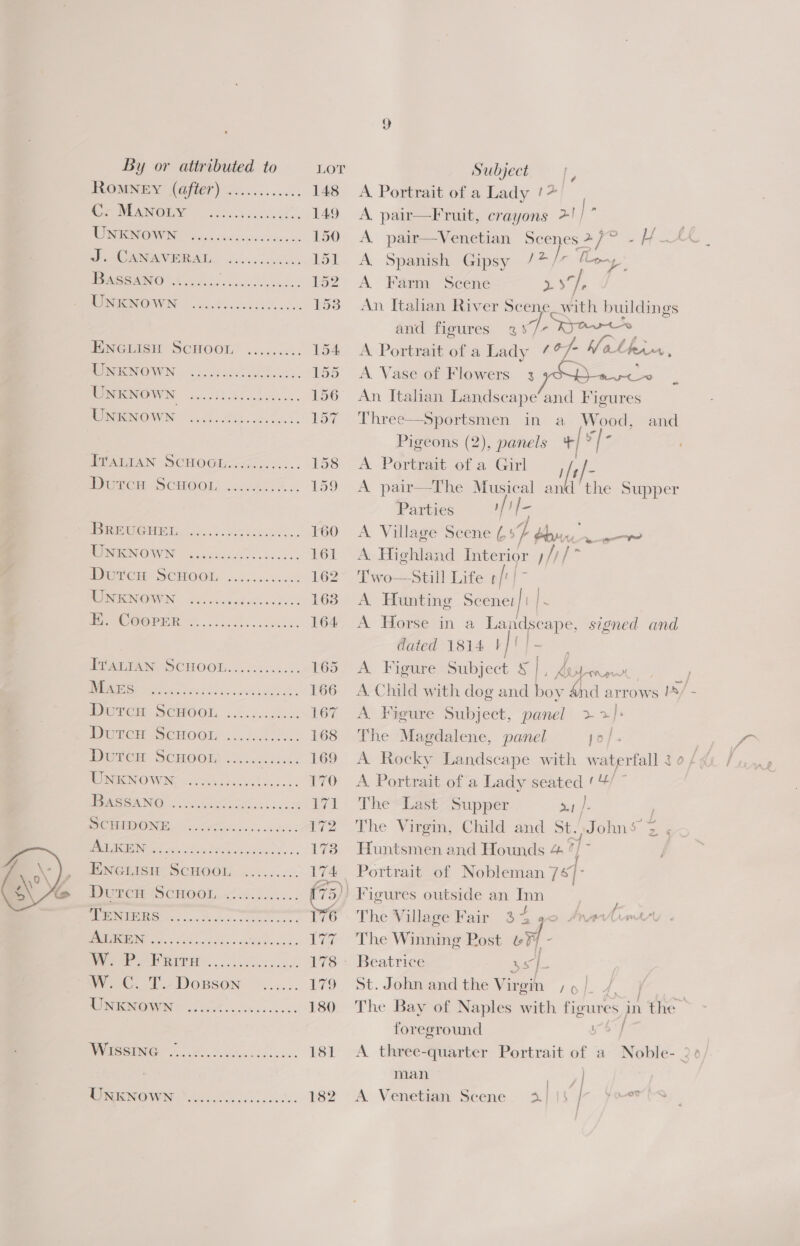 9
By or attributed to LOT Subject
ROMNEY (after) ............ 148 A Portrait of a Lady 12/
C. MANOLY ............ 149 A pair—Fruit, crayons
UNKNOWN ............ 150 A pair—Venetian Scenes
J. CANAVERAL ............ 151 A Spanish Gipsy
BASSANO ............ 152 A Farm Scene 25/-
UNKNOWN ............ 153 An Italian River Scene with buildings
and figures 25/-
ENGLISH SCHOOL ......... 154 A Portrait of a Lady
UNKNOWN ............ 155 A Vase of Flowers
UNKNOWN ............ 156 An Italian Landscape and Figures
UNKNOWN ............ 157 Three—Sportsmen in a Wood, and
Pigeons (2), panels
ITALIAN SCHOOL ............ 158 A Portrait of a Girl
DUTCH SCHOOL ............ 159 A pair—The Musical and the Supper
Parties
BREUGHEL ............ 160 A Village Scene
UNKNOWN ............ 161 A Highland Interior
DUTCH SCHOOL ............ 162 Two—Still Life
UNKNOWN ............ 163 A Hunting Scene
E. COOPER ............ 164 A Horse in a Landscape, signed and
dated 1814
ITALIAN SCHOOL ............ 165 A Figure Subject
MAES ............ 166 A Child with dog and boy and arrows
DUTCH SCHOOL ............ 167 A Figure Subject, panel 22/-
DUTCH SCHOOL ............ 168 The Magdalene, panel
DUTCH SCHOOL ............ 169 A Rocky Landscape with waterfall
UNKNOWN ............ 170 A Portrait of a Lady seated
BASSANO ............ 171 The Last Supper
SCHIDONE ............ 172 The Virgin, Child and St. John
ALKEN ............ 173 Huntsmen and Hounds
ENGLISH SCHOOL ......... 174 Portrait of Nobleman
DUTCH SCHOOL ............ 175 Figures outside an Inn
TENIERS ............ 176 The Village Fair
ALKEN ............ 177 The Winning Post
W. P. FRITH ............ 178 Beatrice
W. C. T. DOBSON ...... 179 St. John and the Virgin
UNKNOWN ............ 180 The Bay of Naples with figures in the
foreground
WISSING ............ 181 A three-quarter Portrait of a Noble-
man
UNKNOWN ............ 182 A Venetian Scene